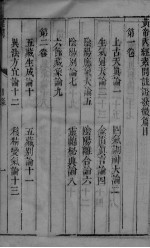 黃帝內經素問註證發微篇目
第一卷
上古天真論一
四氣調神大論二
生氣通天論三
金匱真言論四
陰陽應象大論五
陰陽離合論六
陰陽別論七
靈蘭秘典論八
第二卷
六節藏象論九
五藏生成論十
五藏別論十一
異法方宜論十二
移精變氣論十三